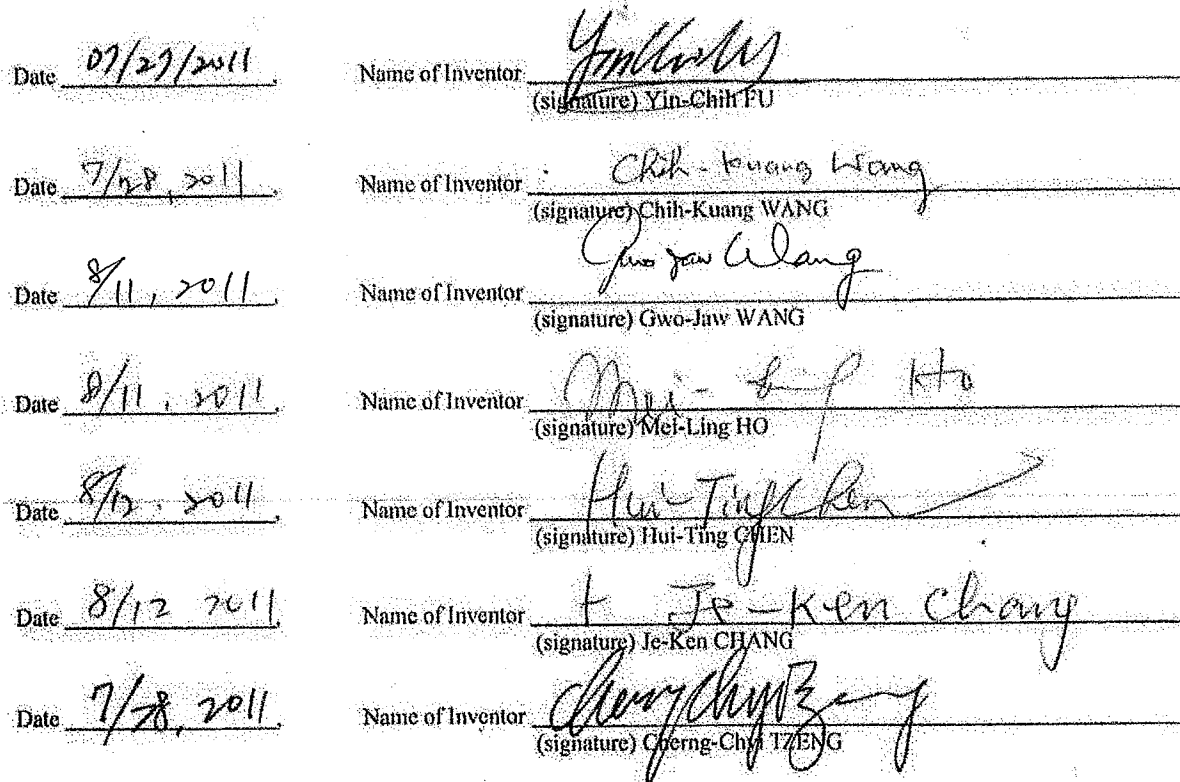 Date 07/27/2011. Name of Inventor
(signature) Yin-Chih FU
Date 7/28, 2011. Name of Inventor Chih-Kuang Wang
(signature) Chih-Kuang WANG
Gwo Jaw Wang
Date 8/11, 2011. Name of Inventor
(signature) Gwo-Jaw WANG
Date 8/11, 2011. Name of Inventor Mei-Ling Ho
(signature) Mei-Ling HO
Date 8/12. 2011. Name of Inventor Hui-Ting Chen
(signature) Hui-Ting CHEN
Date 8/12 2011. Name of Inventor Je-Ken Chang
(signature) Je-Ken CHANG
Date 7/28, 2011. Name of Inventor
(signature) Cherng-Chyi TZENG